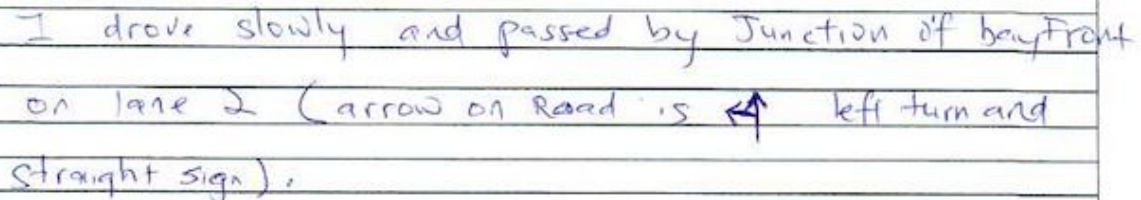 I drove slowly and passed by Junction of bayfront
on lane 2 (arrow on Road is left turn and
straight sign).